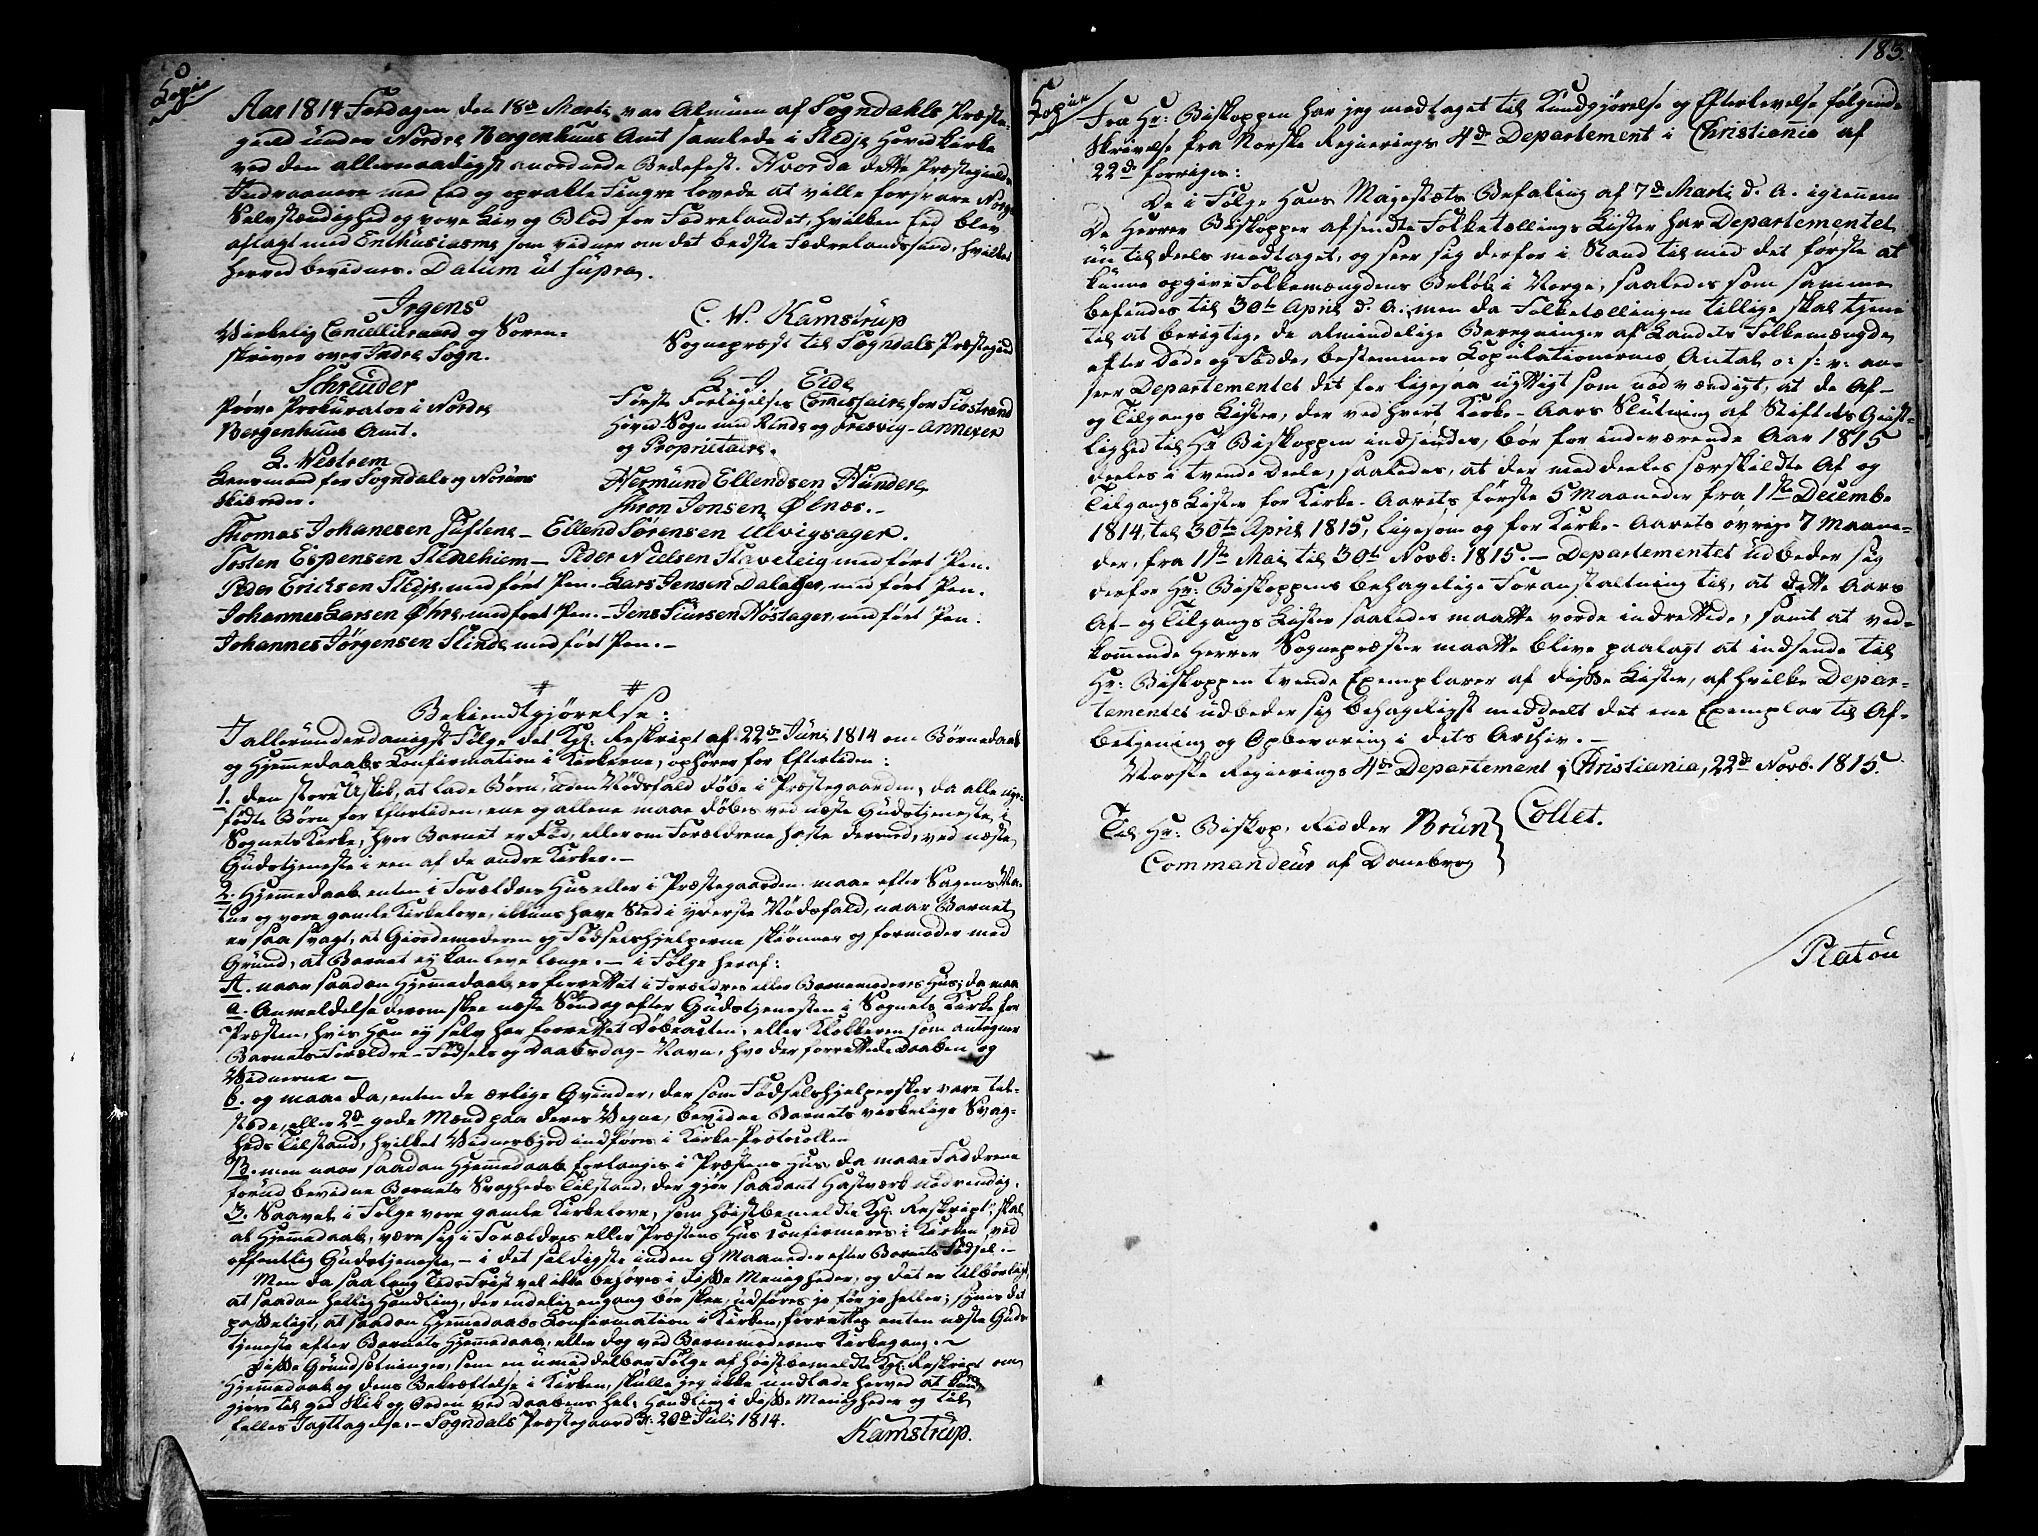 Copie
Aar 1814 Fredagen den 18de Marts var Almuen af Sogndahls Præste-
gield under Nordre Bergenhuus Amt samlede i Stedje Hovedkirke
ved den allernaadigst anordnede Bedefest. Hvorda dette Præstegields
Indvaanere med Eed og oprakte Fingre lovede at ville forsvare Norges
Selvstændighed og vove Liv og Blod for Fædrelandet, hvilken Eed blev
aflagt med Enthusiasme som vidner om det bedste Fædrelandssind, hvilket
herved bevidnes. Datum ut supra.
Irgens
Virkelig Cancelliraad og Soren-
skriver over Indre Sogn.
C. W. Kamstrup
Sognepræst til Sogndals Præstegield
Schreuder
Prøve Prokurator i Nordre
Bergenhuus Amt.
L. J. Eide
Første Forligelses Comissaire for Siostrand
Hoved Sogn med Rinde og Fresvig-Annexer
og Proprietaire.
L. Nestrem
Lensmand for Sogndals og Norums
Skibreder.
Hermund Ellendsen Hundere
Simon Jonsen Ølnæs.-
Thomas Johanesen Tuftene - Ellend Sørensen Ulvigsager.
Tosten Espensen Stenehiem - Peder Nielsen Staveteig med ført Pen.
Peder Ericksen Stedje med ført Pen. - Lars Jensen Dalager, med ført Pen.
Johannes Larsen Øhre, med ført Pen. - Jens Siursen Nøstager, med ført Pen.
Johannes Jørgensen Slinde med ført Pen. -
Bekiendtgjørelse:
I allerunderdanigst Følge det Kgl. Reskript af 22de Juni 1814 om Børnedaab
og Hjemmedaabs Confirmation i Kirkerne, ophører for Eftertiden:
1. den store Uskik, at lade Børn, uden Nødsfald døbe i Præstegaarden, da alle nye-
fødte Børn for Eftertiden, ene og allene maae døbes ved næste Gudstjeneste, i
Sognets Kirke, hvor Barnet er Fød, eller om Forældrene haste dermed, ved næste
Gudstjeneste i een af de andre Kirker. -
2. Hjemmedaab enten i Forældres Hus eller i Præstegaarden maae efter Sagens Na-
tur og vore gamle Kirkelove, ikkuns have Sted i yderste Nødsfald, naar Barnet
er saa svagt, at Giordemoderen og Fødselshjelperne skiønner og formoder med
Grund, at Barnet ej kan leve længe. - i Følge heraf:
A. naar saadan Hjemmedaab er forrettet i Forældres eller Barnemoderes Hus; da maa
a. Anmeldelse derom skee næste Søndag efter Gudstjenesten i Sognets Kirke for
Præsten, hvis Han ej selv har forrettet Døbeacten, eller Klokkeren som antegner
Barnets Forældre - Fødsels og Daabsdag - Navn, hvo der forrettede Daaben og
Vidnerne -
b. og maae da, enten de ærlige Qvinder, der som Fødselshjelpersker vare til-
stæde, eller 2de gode Mænd paa deres Vegne, bevidne Barnets virkelige Svag-
heds Tilstand, hvilket Vidnesbyrd indføres i Kirke-Protocollen
B. men naar saadan Hjemmedaab forlanges i Præstens Hus, da maae Faddrene
forud bevidne Barnets Svagheds Tilstand, der gjør saadant Hastværk nødvendig.
3. Saavel i Følge vore gamle Kirkelove, som høistbemeldte Kgl. Reskript; skal
al Hjemmedaab, være sig i Forældres eller Præstens Hus confirmeres i Kirken, ved
offentlig Gudstjeneste, - i det seldigste inden 9 Maaneder efter Barnets Fødsel. -
Men da saa lang Tids Frist vel ikke behøves i disse Menigheder, og det er tilbørligt,
at saadan hellig Handling, der endelig engang bør skee, udføres jo før jo heller; synes det
passeligt, at saadan Hjemmedaabs Confirmation i Kirken, forrettes enten næste Guds-
tjeneste efter Barnets Hjemmedaab, eller dog ved Barnemoderens Kirkegang. -
Disse Grundsætninger, som en umiddelbar Følge af høistbemeldte Kgl. Reskript om
Hjemmedaab og dens Bekræftelse i Kirken, skulle jeg ikke undlade herved at kund-
gjøre til god Skik og Orden ved Daabens hel. Handling i disse Menigheder og til
fælles Iagttagelse. - Sogndals Præstegaard d: 20de Juli 1814.
Kamstrup.
183.
Copie
Fra Hr: Biskoppen har jeg modtaget til Kundgjørelse og Efterlevelse følgende
Skrivelse fra Norske Regierings 4de Departement i Christiania af
22de forriges:
De i Følge Hans Majestæts Befaling af 7de Marti d. A. igiennem
De Herrer Biskopper afsendte Folketællings Lister har Departementet
nu til deels modtaget, og seer sig derfor i Stand til med det første at
kunne opgive Folkemængdens Beløb i Norge, saaledes som samme
befandtes til 30te April d. A.; men da Folketællingen tillige skal tjene
til at berigtige de almindelige Beregninger af Landets Folkemængde
efter Døde og Fødde, bestemmer Copulationernes Antal o: s: v: an-
seer Departementet det for ligesaa nyttigt som nødvændigt, at de Af-
og Tilgangs Lister, der ved hvert Kirke-Aars Slutning af Stiftets Geist-
lighed til Hr. Biskoppen indsendes, bør for indeværende Aar 1815
deeles i tvende Deele, saaledes, at der meddeeles særskildte Af og
Tilgangs Lister for Kirke-Aarets første 5 Maaneder fra 1ste Decembr
1814, til 30te April 1815, ligesom og for Kirke-Aarets øvrige 7 Maane-
der, fra 1ste Mai til 30te Novb: 1815. - Departementet udbeder sig
derfor Hr: Biskoppens behagelige Foranstaltning til, at dette Aars
Af- og Tilgangs Lister saaledes maatte vorde indrettede, samt at ved-
kommende Herrer Sognepræster maatte blive paalagt at indsende til
Hr: Biskoppen tvende Exemplarer af disse Lister, af hvilke Depar-
tementet udbeder sig behageligst meddeelt det ene Exemplar til Af-
betjening og Opbevaring i dets Archiv. -
Norske Regierings 4de Departement i Christiania, 22de Novb. 1815.
Collet.
Til Hr: Biskop, Ridder Brun
Commandeur af Danebrog
Platou